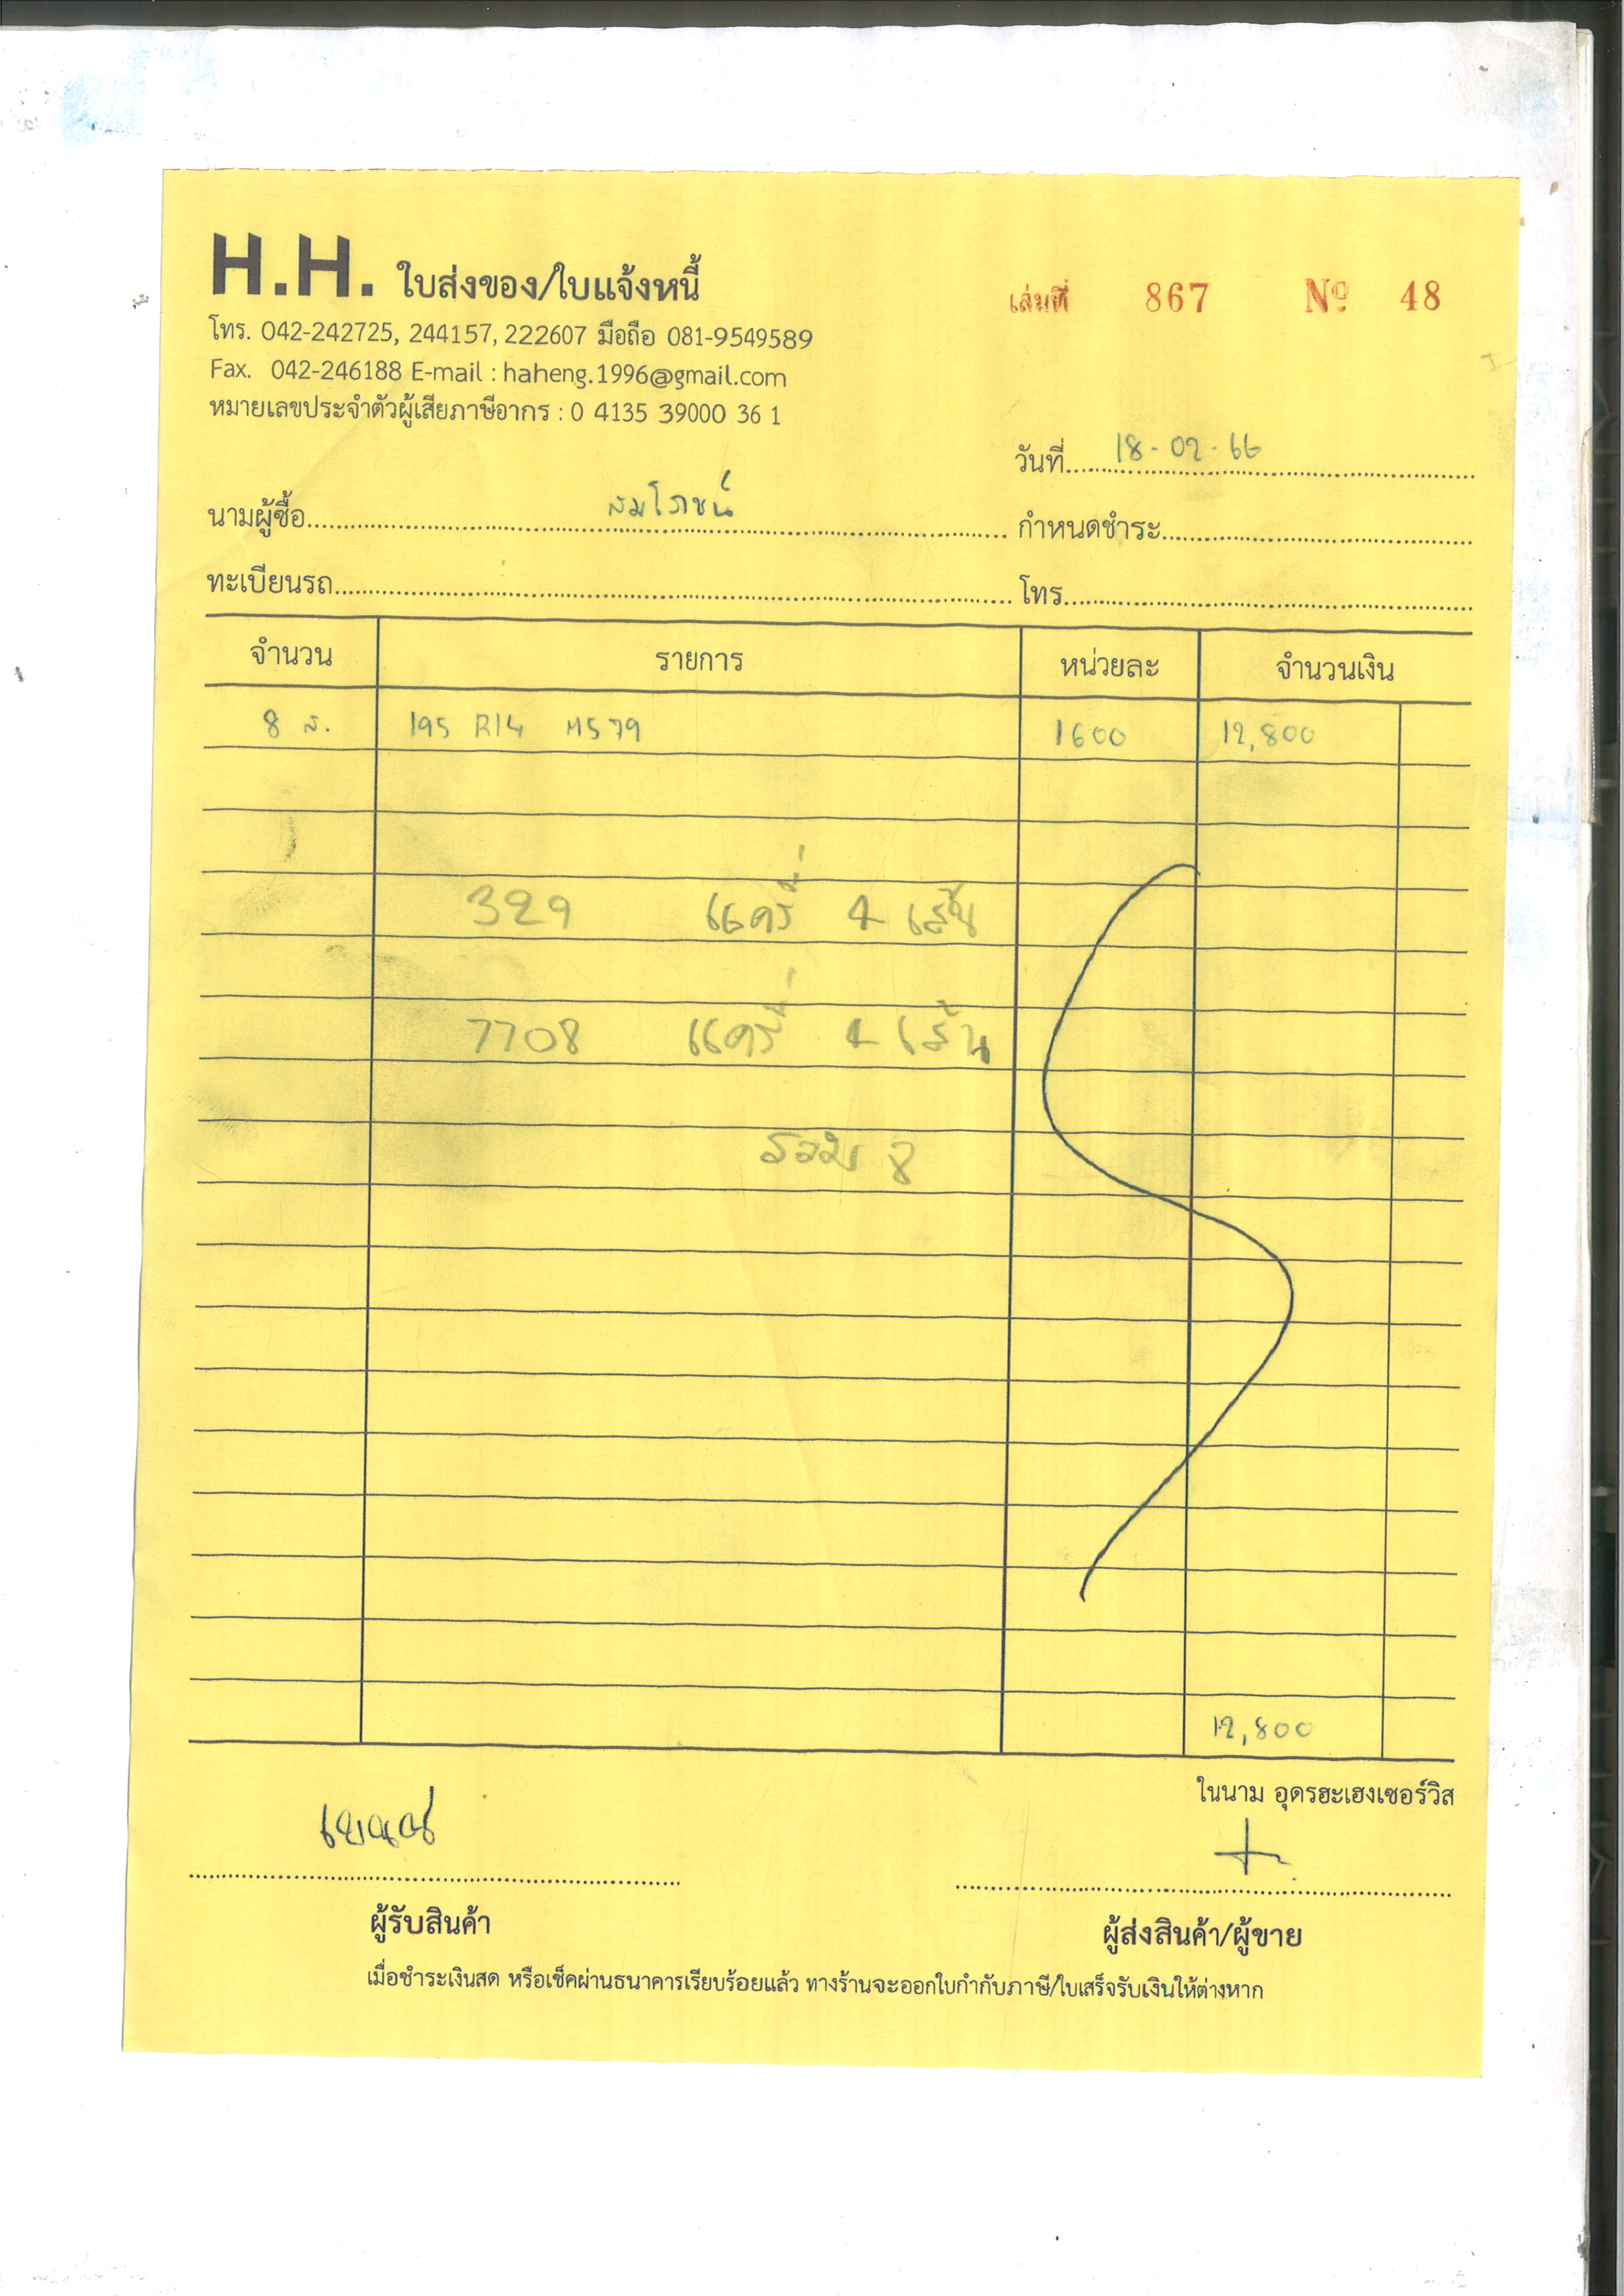 H.H. ใบส่งของ/ใบแจ้งหนี้
เล่มที่ 867 Nº 48
โทร. 042-242725, 244157, 222607 มือถือ 081-9549589
Fax. 042-246188 E-mail : haheng.1996@gmail.com
หมายเลขประจำตัวผู้เสียภาษีอากร : 0 4135 39000 36 1
วันที่ 18-02-66
นามผู้ซื้อ สมโภชน์ กำหนดชำระ
ทะเบียนรถ โทร
จำนวน รายการ หน่วยละ จำนวนเงิน
8 ส. 195 R14 M579 1600 12,800
329 แครี่ 4 เส้น
7708 แครี่ 4 เส้น
รวม 8
12,800
ในนาม อุดรฮะเฮงเซอร์วิส
ผู้รับสินค้า ผู้ส่งสินค้า/ผู้ขาย
เมื่อชำระเงินสด หรือเช็คผ่านธนาคารเรียบร้อยแล้ว ทางร้านจะออกใบกำกับภาษี/ใบเสร็จรับเงินให้ต่างหาก